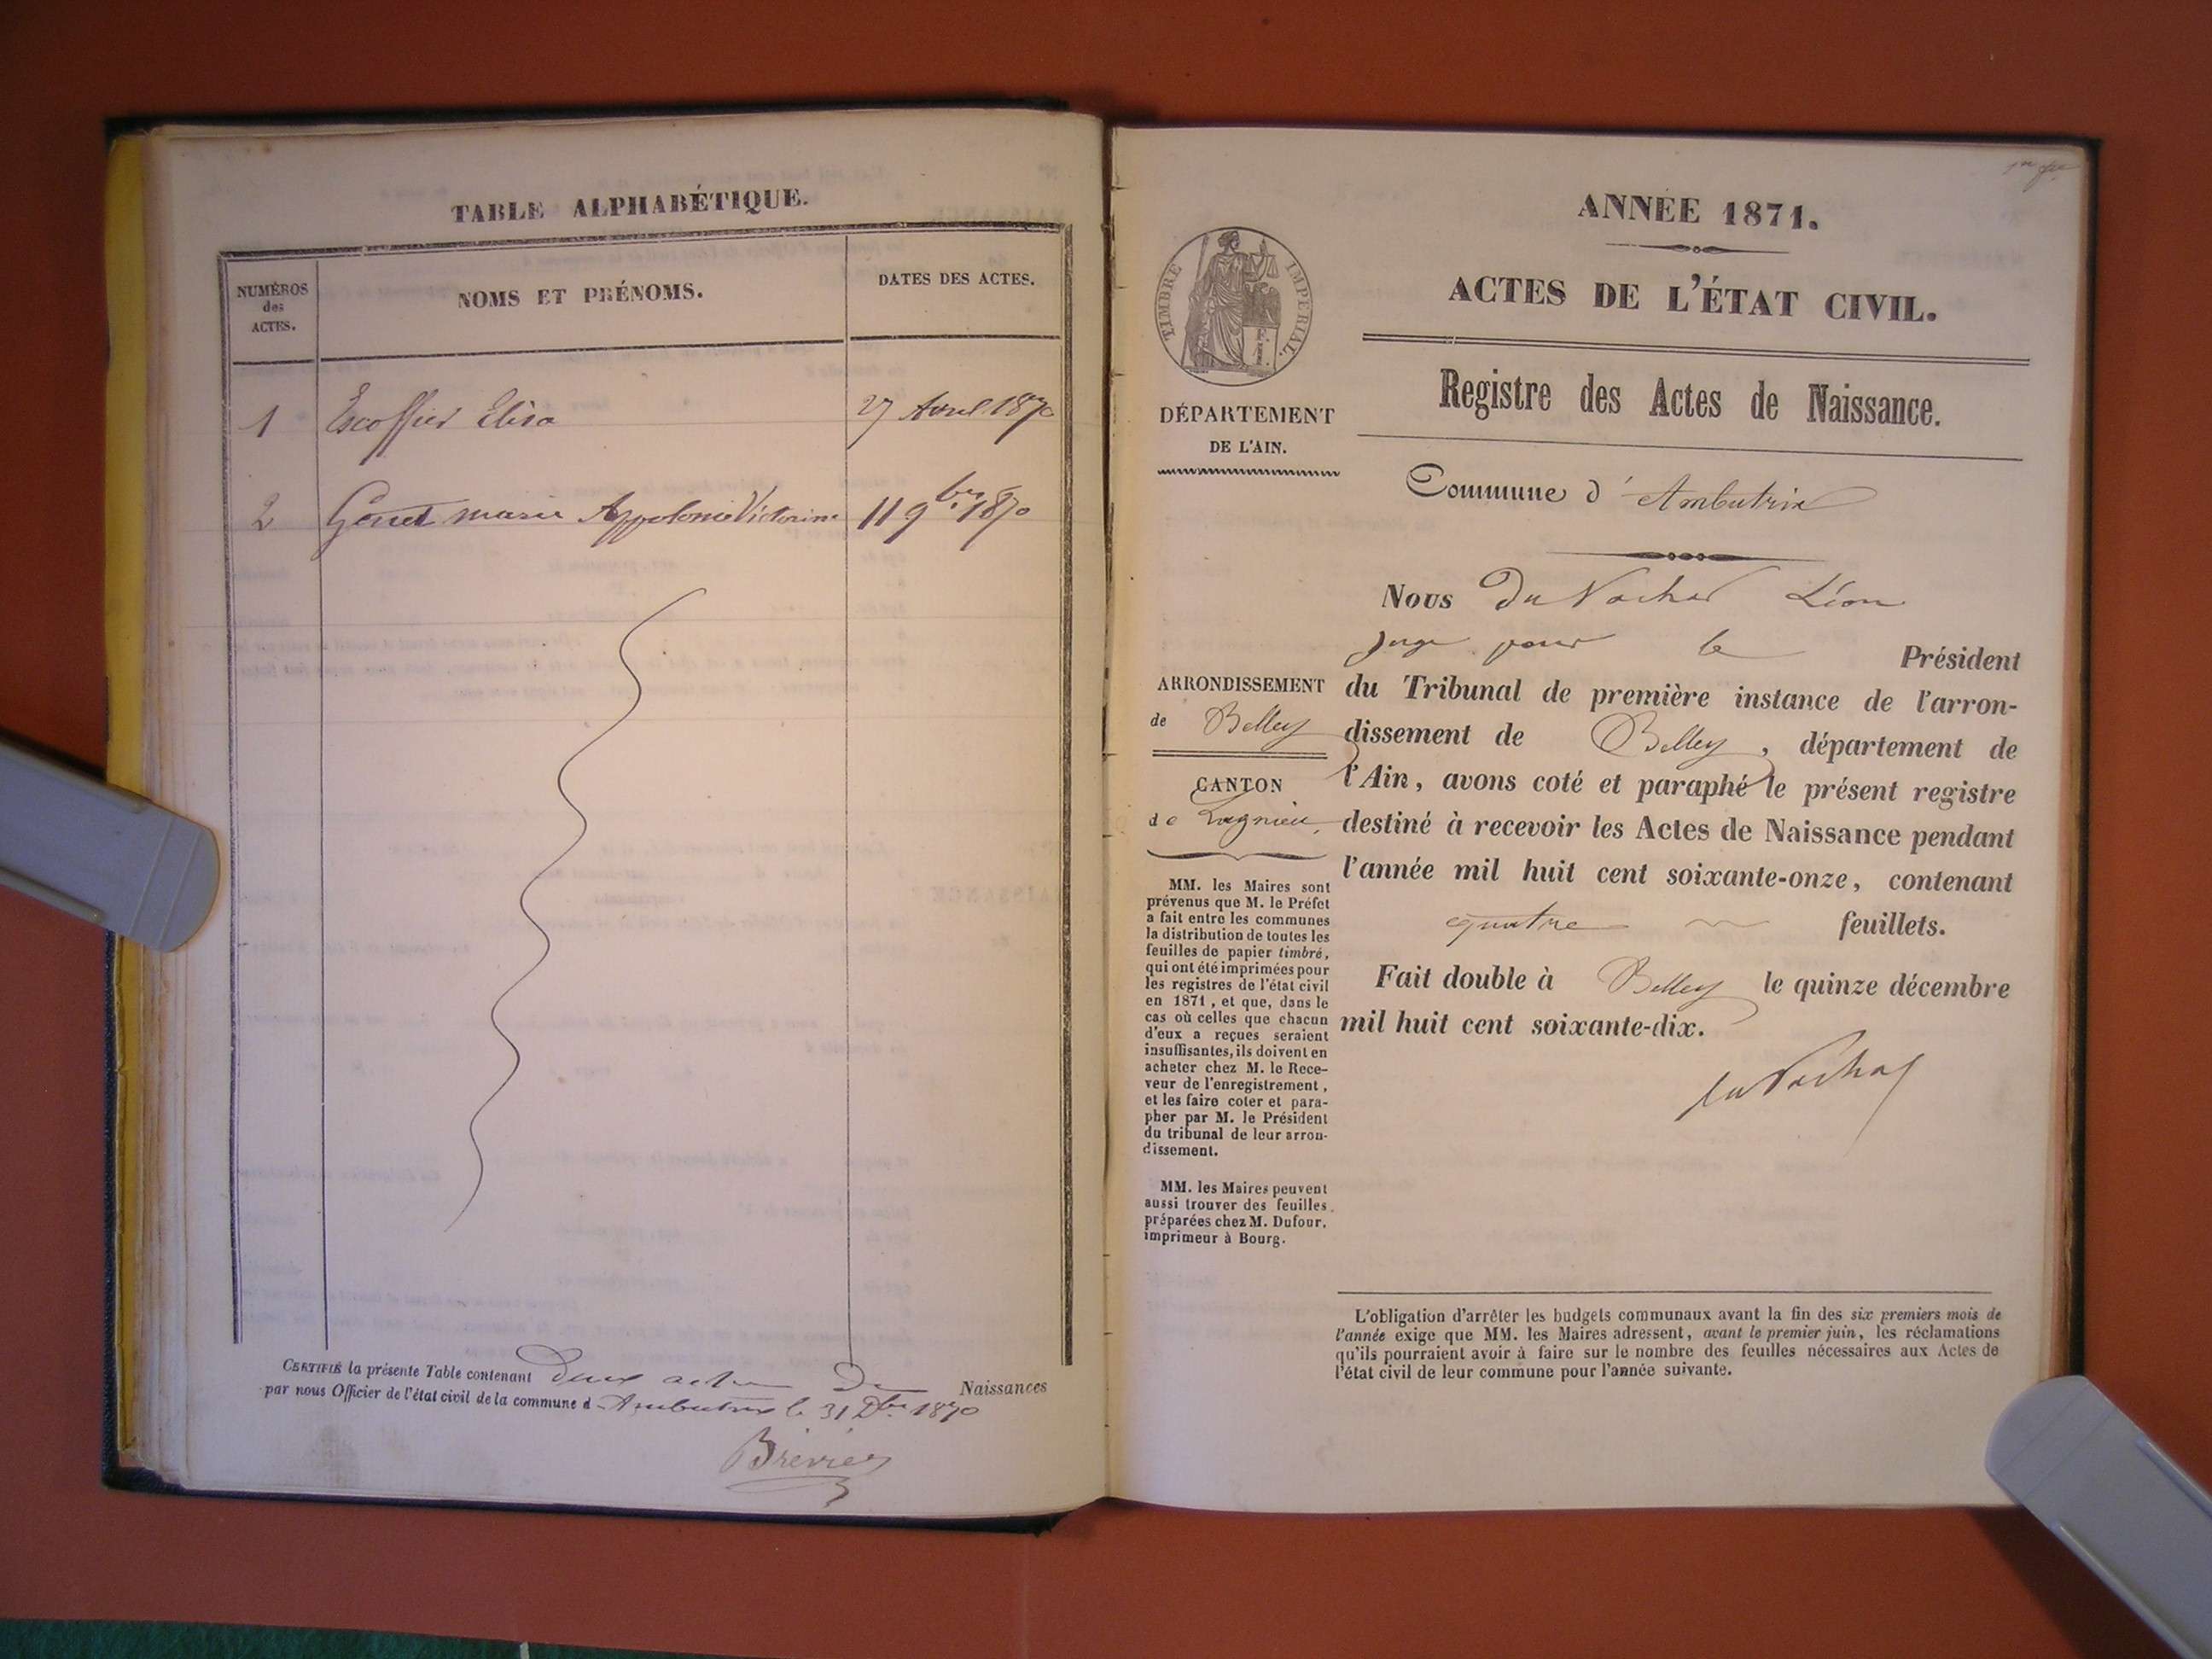 TABLE ALPHABÉTIQUE.
NUMÉROS
des
ACTES.
NOMS ET PRÉNOMS.
DATES DES ACTES.
1 Escoffier Elisa 27 Avril 1870
2 Genet marie Appolonie Victorine 11 9bre 1870
CERTIFIÉ la présente Table contenant deux actes De Naissances
par nous Officier de l'état civil de la commune d Ambutrix le 31 Dbre 1870
1er feu
ANNÉE 1871.
ACTES DE L'ÉTAT CIVIL.
TIMBRE IMPÉRIAL.
Registre des Actes de Naissance.
DÉPARTEMENT
DE L'AIN.
Commune d' Ambutrix
Nous Du Vachat Léon
Juge pour le Président
du Tribunal de première instance de l'arron-
dissement de Belley, département de
l'Ain, avons coté et paraphé le présent registre
destiné à recevoir les Actes de Naissance pendant
l'année mil huit cent soixante-onze, contenant
quatre feuillets.
Fait double à Belley le quinze décembre
mil huit cent soixante-dix.
du Vachat
ARRONDISSEMENT
de Belley
CANTON
de Lagnieu,
MM. les Maires sont
prévenus que M. le Préfet
a fait entre les communes
la distribution de toutes les
feuilles de papier timbré,
qui ont été imprimées pour
les registres de l'état civil
en 1871, et que, dans le
cas où celles que chacun
d'eux a reçues seraient
insuffisantes, ils doivent en
acheter chez M. le Rece-
veur de l'enregistrement,
et les faire coter et para-
pher par M. le Président
du tribunal de leur arron-
dissement.
MM. les Maires peuvent
aussi trouver des feuilles
préparées chez M. Dufour,
imprimeur à Bourg.
L'obligation d'arrêter les budgets communaux avant la fin des six premiers mois de
l'année exige que MM. les Maires adressent, avant le premier juin, les réclamations
qu'ils pourraient avoir à faire sur le nombre des feuilles nécessaires aux Actes de
l'état civil de leur commune pour l'année suivante.